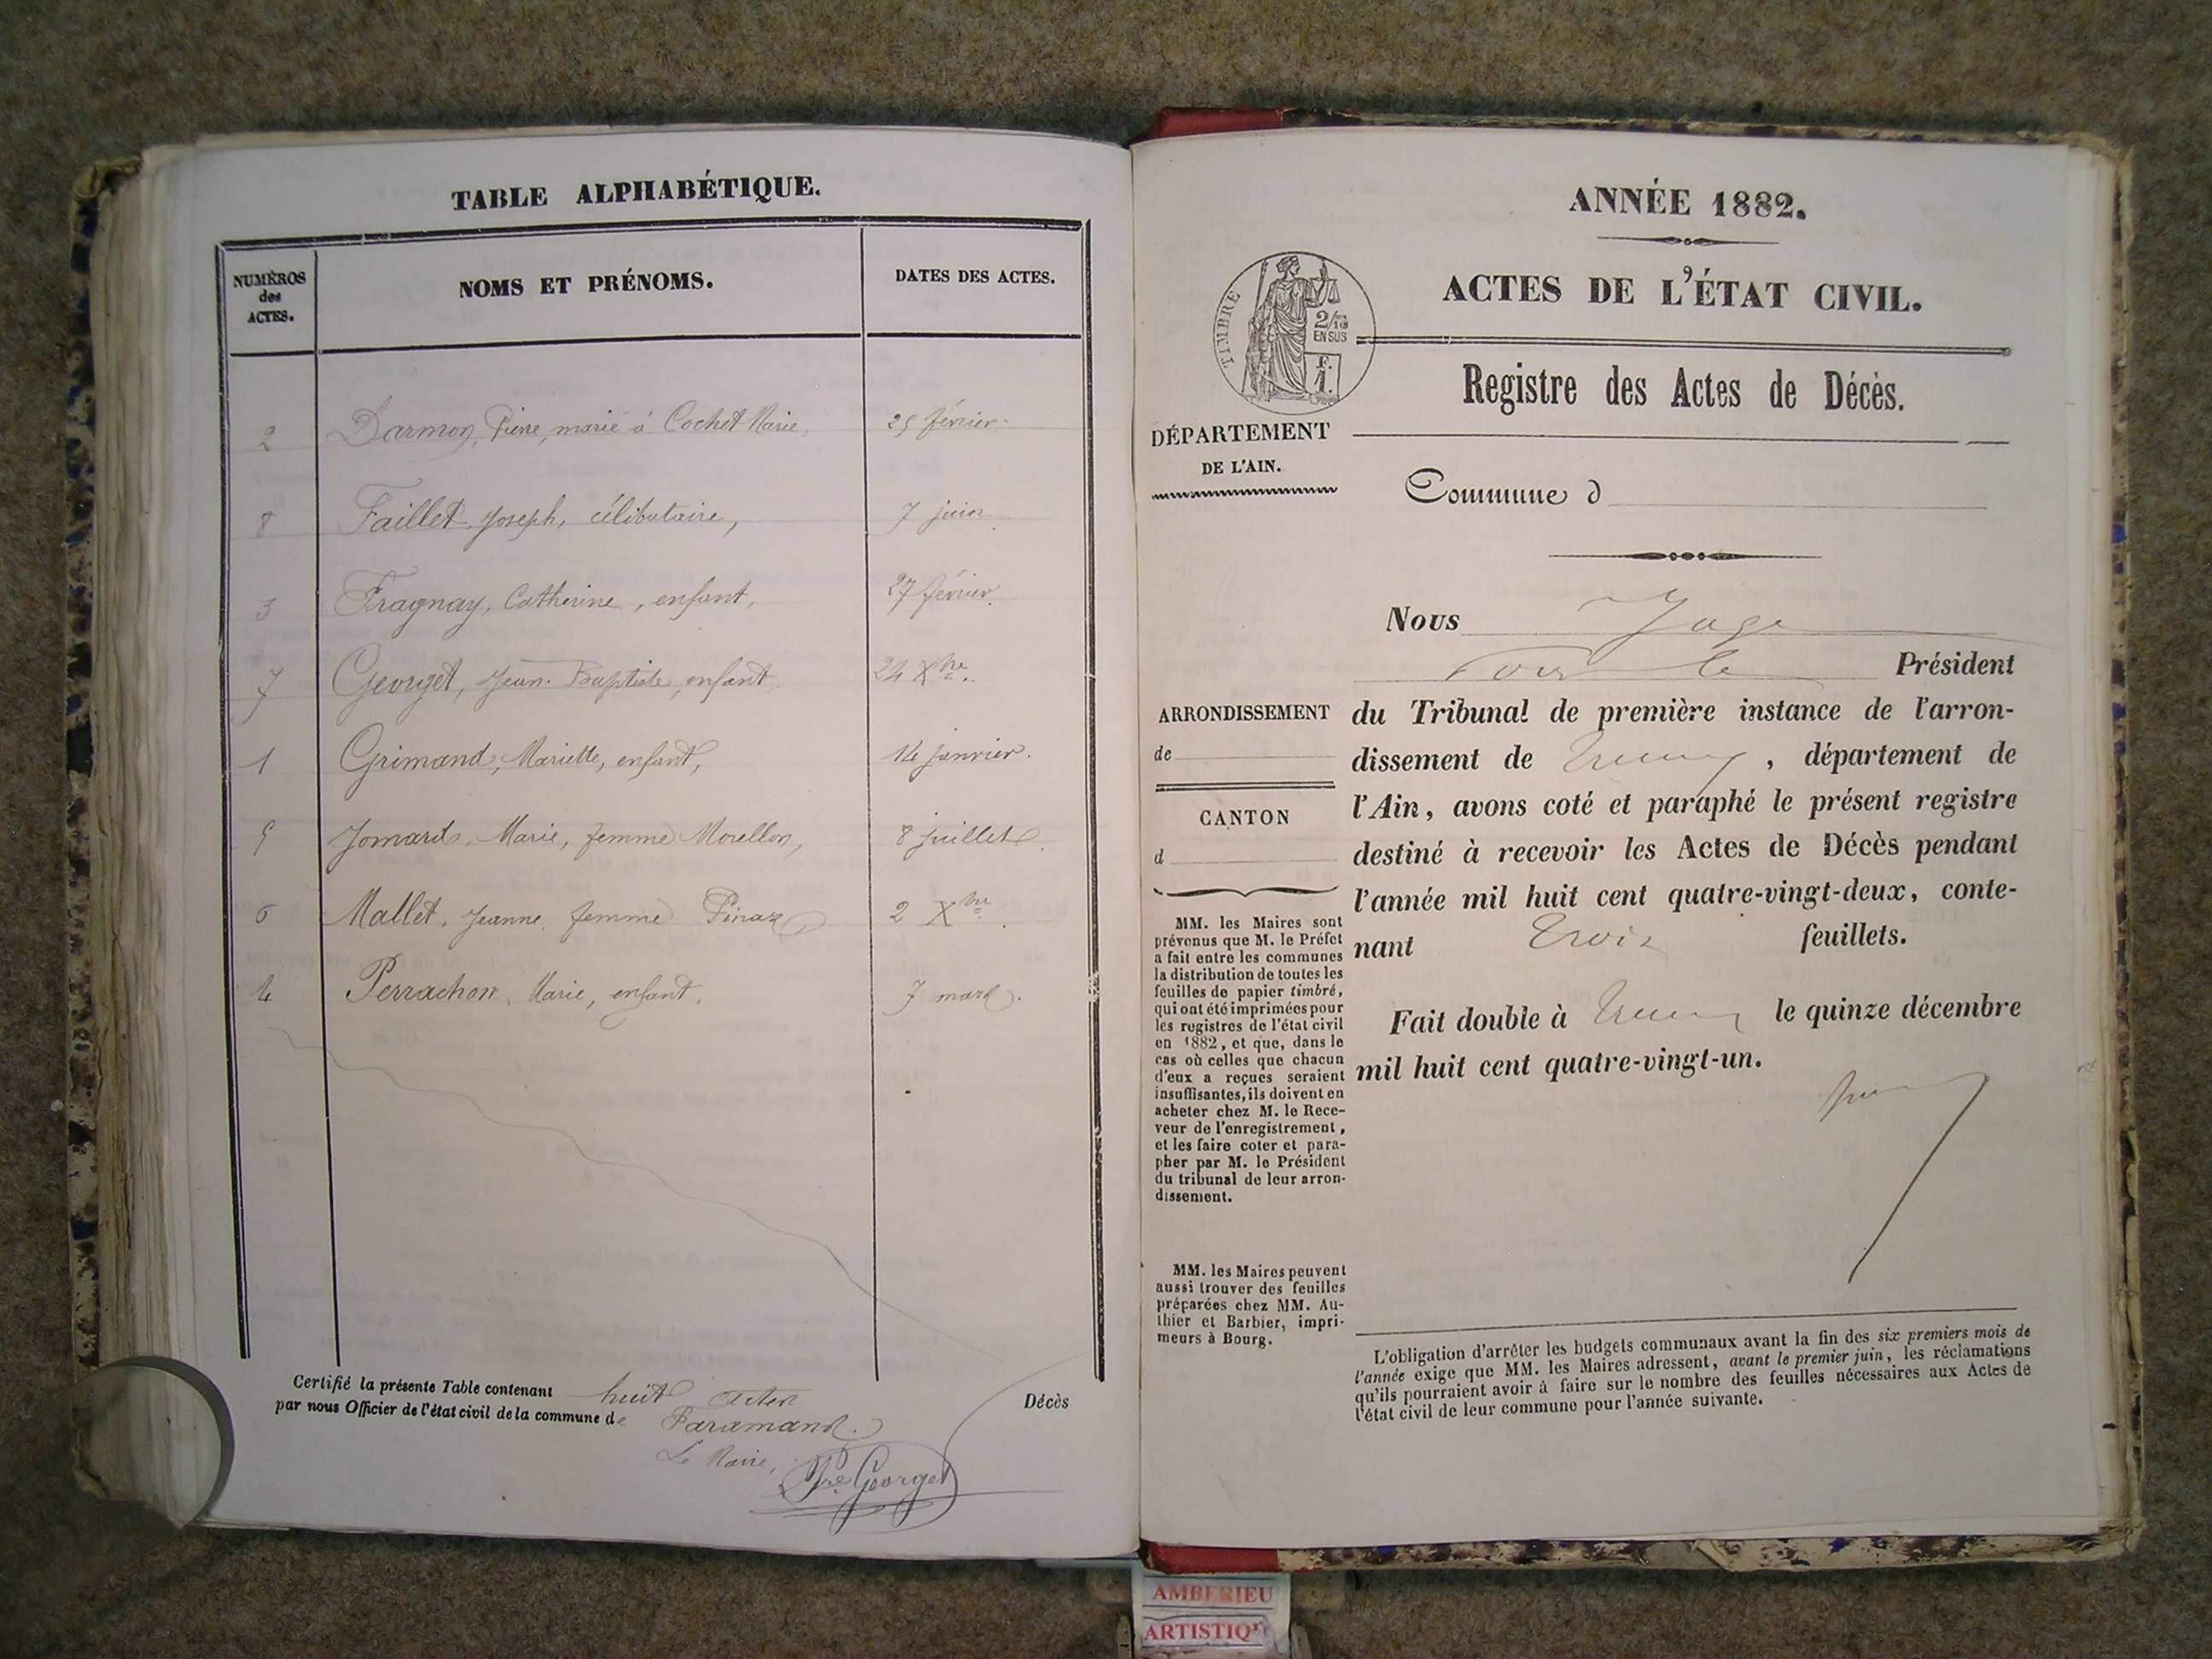 TABLE ALPHABÉTIQUE.
NUMÉROS
des
ACTES.
NOMS ET PRÉNOMS.
DATES DES ACTES.
2 Darmon, Pierre, marié à Cochet Marie, 25 février
8 Faillet Joseph, célibataire, 7 juin
3 Fragnay, Catherine, enfant, 27 février.
7 Georget, Jean-Baptiste, enfant. 24 Xbre.
1 Grimand, Mariette, enfant, 14 janvier.
5 Jomard, Marie, femme Morellon, 8 juillet.
6 Mallet, Jeanne, femme Pinaz 2 Xbre.
4 Perrachon, Marie, enfant, 7 mars.
Certifié la présente Table contenant huit actes Décès
par nous Officier de l'état civil de la commune de Faramans.
Le Maire,
Georget
ANNÉE 1882.
ACTES DE L'ÉTAT CIVIL.
TIMBRE
2/10
EN SUS
F.
1.
Registre des Actes de Décès.
DÉPARTEMENT
DE L'AIN.
Commune d
Nous Juge
Pour le Président
du Tribunal de première instance de l'arron-
dissement de , département de
l'Ain, avons coté et paraphé le présent registre
destiné à recevoir les Actes de Décès pendant
l'année mil huit cent quatre-vingt-deux, conte-
nant Trois feuillets.
Fait double à le quinze décembre
mil huit cent quatre-vingt-un.
ARRONDISSEMENT
de
CANTON
d
MM. les Maires sont
prévenus que M. le Préfet
a fait entre les communes
la distribution de toutes les
feuilles de papier timbré,
qui ont été imprimées pour
les registres de l'état civil
en 1882, et que, dans le
cas où celles que chacun
d'eux a reçues seraient
insuffisantes, ils doivent en
acheter chez M. le Rece-
veur de l'enregistrement,
et les faire coter et para-
pher par M. le Président
du tribunal de leur arron-
dissement.
MM. les Maires peuvent
aussi trouver des feuilles
préparées chez MM. Au-
thier et Barbier, impri-
meurs à Bourg.
L'obligation d'arrêter les budgets communaux avant la fin des six premiers mois de
l'année exige que MM. les Maires adressent, avant le premier juin, les réclamations
qu'ils pourraient avoir à faire sur le nombre des feuilles nécessaires aux Actes de
l'état civil de leur commune pour l'année suivante.
AMBERIEU
ARTISTIQ